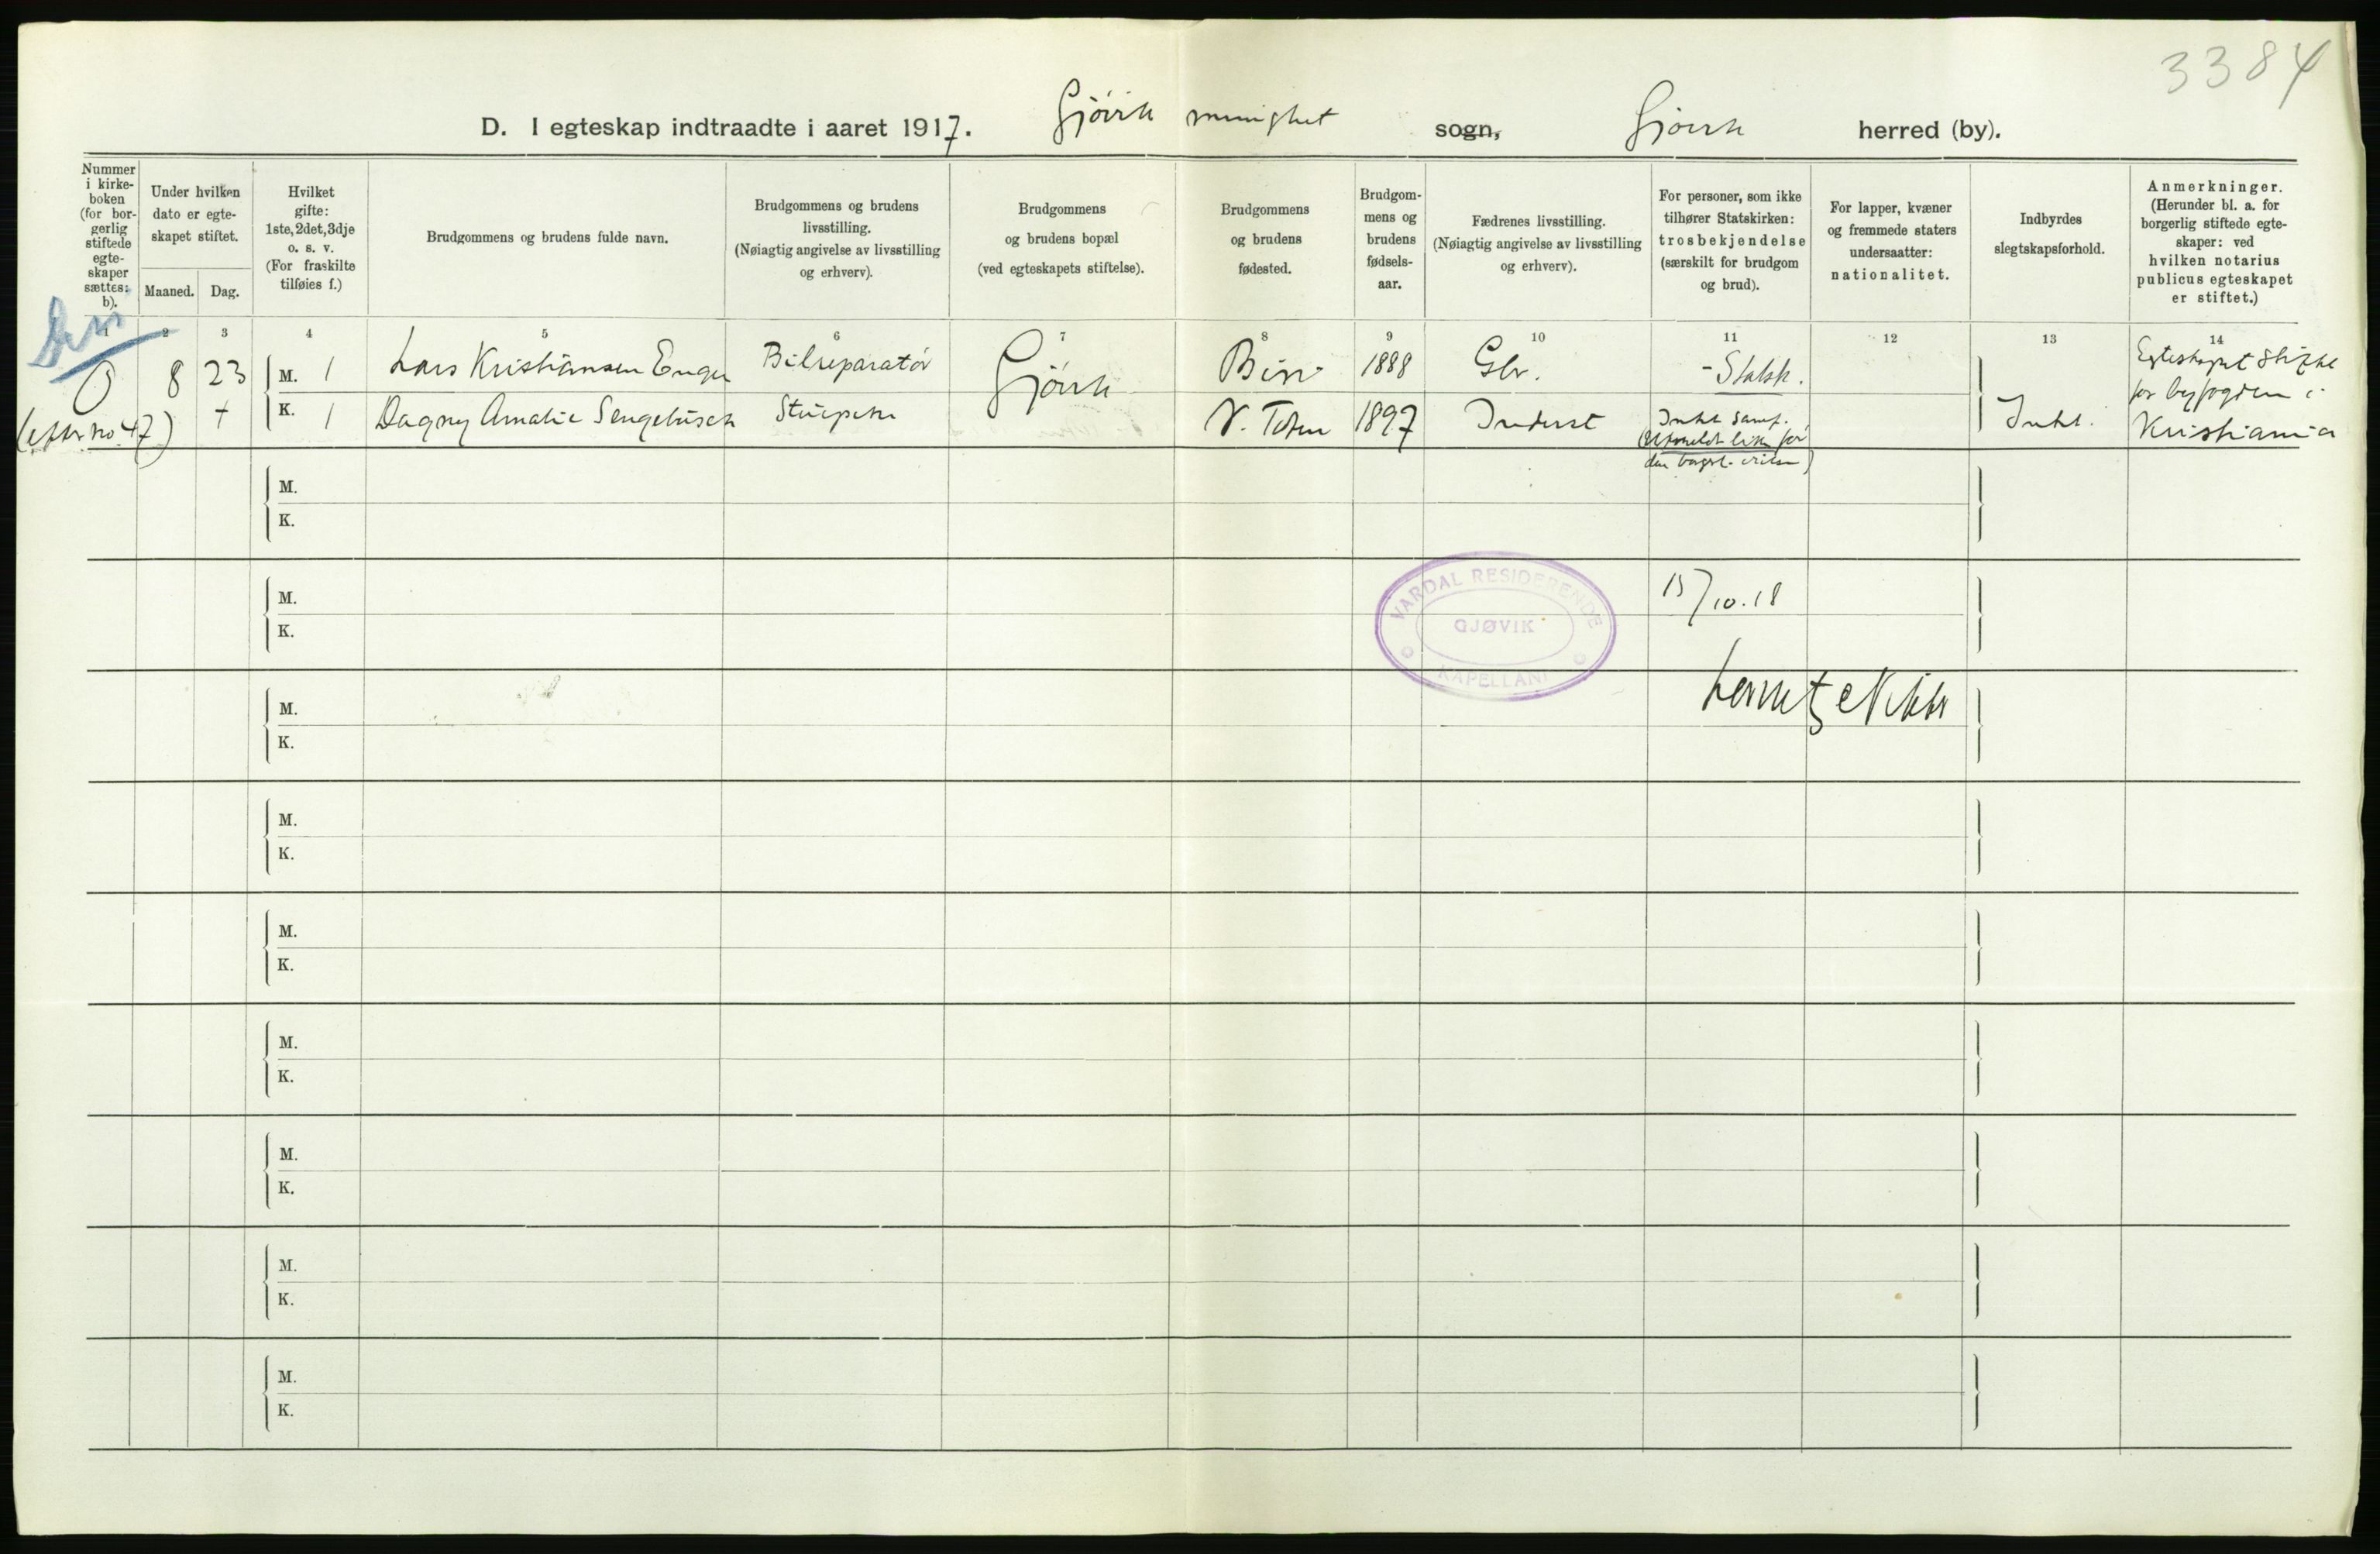 3384
D. I egteskap indtraadte i aaret 1917. Gjövik menighet sogn, Gjövik herred (by).
Nummer
i kirke-
boken
(for bor-
gerlig
stiftede
egte-
skaper
sættes:
b).
Under hvilken
dato er egte-
skapet stiftet.
Maaned. Dag.
Hvilket
gifte:
1ste, 2det, 3dje
o. s. v.
(For fraskilte
tilføies f.)
Brudgommens og brudens fulde navn.
Brudgommens og brudens
livsstilling.
(Nøiagtig angivelse av livsstilling
og erhverv).
Brudgommens
og brudens bopæl
(ved egteskapets stiftelse).
Brudgommens
og brudens
fødested.
Brudgom-
mens og
brudens
fødsels-
aar.
Fædrenes livsstilling.
(Nøiagtig angivelse av livsstilling
og erhverv).
For personer, som ikke
tilhører Statskirken:
trosbekjendelse
(særskilt for brudgom
og brud).
For lapper, kvæner
og fremmede staters
undersaatter:
nationalitet.
Indbyrdes
slegtskapsforhold.
Anmerkninger.
(Herunder bl. a. for
borgerlig stiftede egte-
skaper: ved
hvilken notarius
publicus egteskapet
er stiftet.)
1 2 3 4 5 6 7 8 9 10 11 12 13 14
0 8 23 M. 1 Lars Kristiansen Enger Bilreparatör Gjövik Biri 1888 Gbr. - Statsk. Egteskapet stiftet
for byfogden i
(efter no 47) K. 1 Dagny Amalie Sengebusch Stuepike V. Toten 1897 Inderst Intet samf. Intet. Kristiania
(Utmeldt like før
den borgerl. vielse)
M.
K.
M.
K.
VARDAL RESIDERENDE
GJØVIK
KAPELLANI
15/10.18
M.
K.
M.
K.
M.
K.
M.
K.
M.
K.
M.
K.
M.
K.